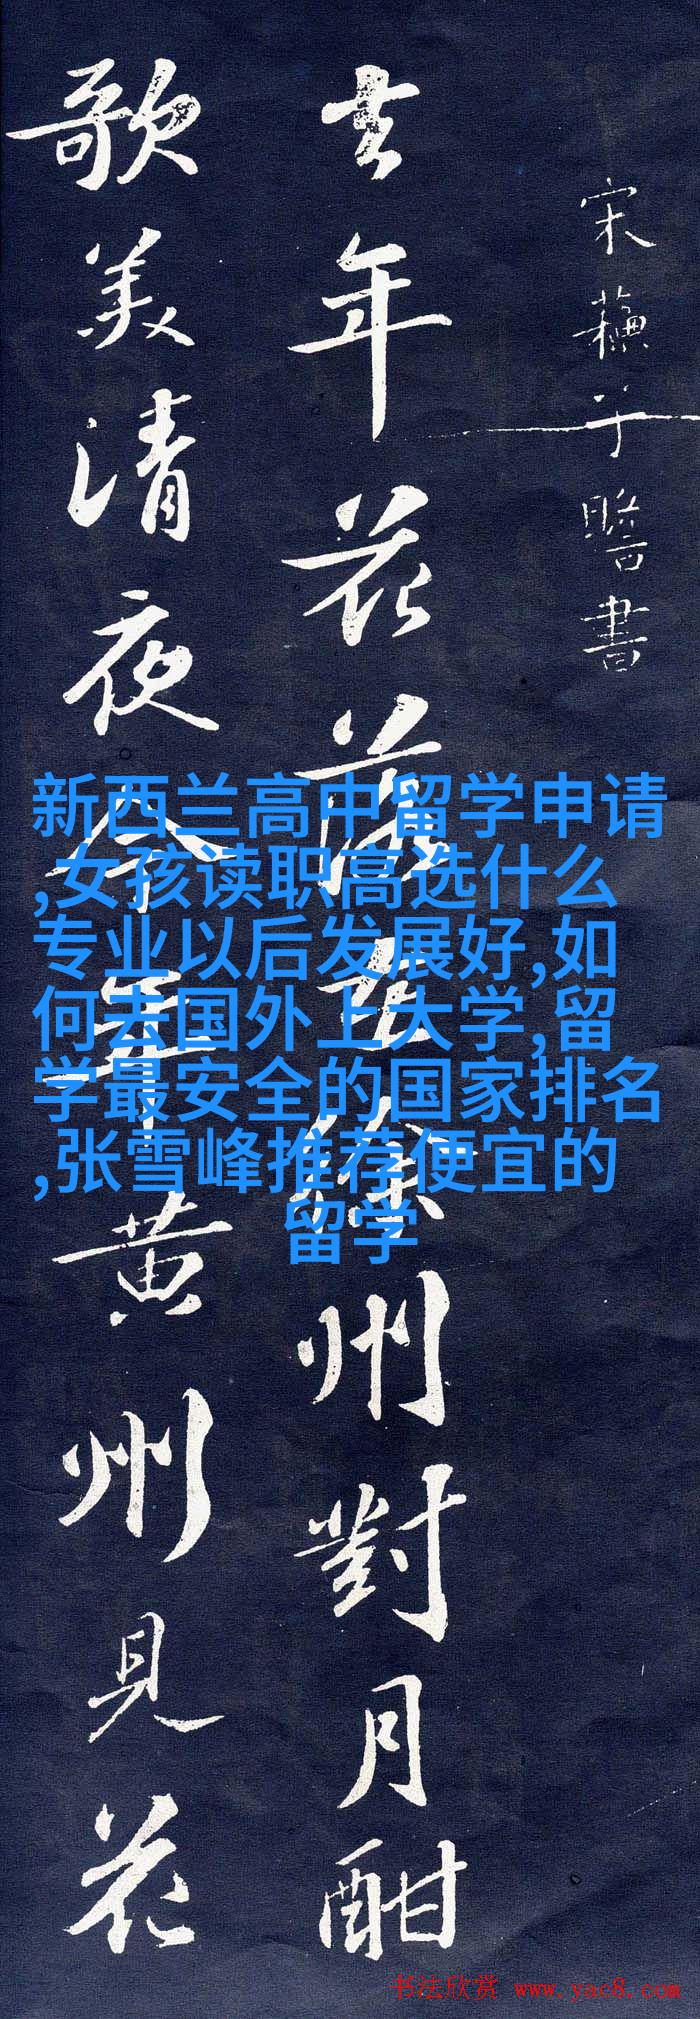 宋蘓子瞻書
去年花落在徐州對月酣
歌美清夜今年黄州見花
新西兰高中留学申请
,女孩读职高选什么
专业以后发展好,如
何去国外上大学,留
学最安全的国家排名
,张雪峰推荐便宜的
留学
书法欣赏 www.yac8.com